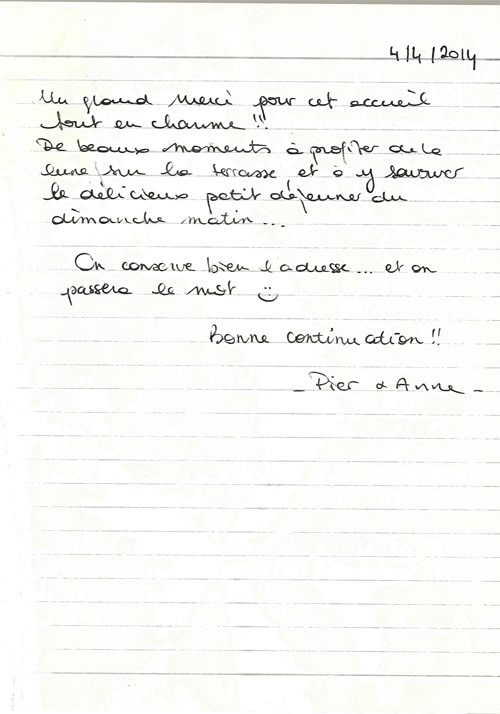 4/4/2014
Un grand merci pour cet accueil
tout en charme !!
De beaux moments à profiter de la
lune sur la terrasse et à y savourer
le délicieux petit déjeuner du
dimanche matin...
On conserve bien l'adresse... et on
passera le mot
Bonne continuation !!
- Pier & Anne -